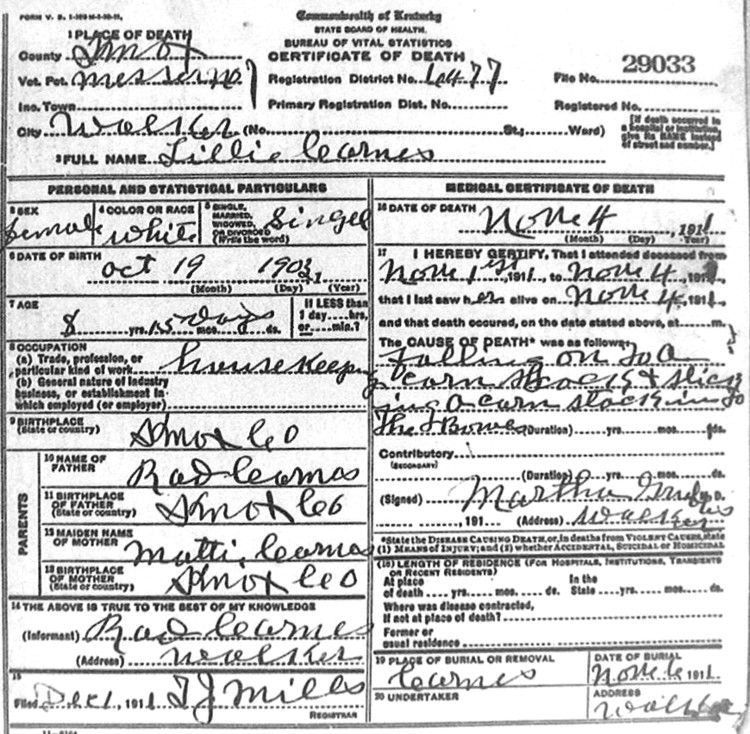 FORM V. S.
Commonwealth of Kentucky
STATE BOARD OF HEALTH.
BUREAU OF VITAL STATISTICS
CERTIFICATE OF DEATH
1 PLACE OF DEATH
County Knox
Vot. Pct. Messer no 7
Inc. Town
City Walker (No. St.; Ward)
Registration District No. 1477
Primary Registration Dist. No.
File No. 29033
Registered No.
[If death occurred in a hospital or institution, give its NAME instead of street and number.]
2 FULL NAME Lillie Carnes
PERSONAL AND STATISTICAL PARTICULARS
3 SEX female
4 COLOR OR RACE white
5 SINGLE, MARRIED, WIDOWED, OR DIVORCED (Write the word) Singel
6 DATE OF BIRTH
Oct 19 190
(Month) (Day) (Year)
7 AGE
8 yrs. 15 days mos. ds.
If LESS than 1 day....hrs, or....min.?
8 OCCUPATION
(a) Trade, profession, or particular kind of work house keeping
(b) General nature of industry business, or establishment in which employed (or employer)
9 BIRTHPLACE (State or country) Knox Co
PARENTS
10 NAME OF FATHER Rad Carnes
11 BIRTHPLACE OF FATHER (State or country) Knox Co
12 MAIDEN NAME OF MOTHER Matti Carnes
13 BIRTHPLACE OF MOTHER (State or country) Knox Co
14 THE ABOVE IS TRUE TO THE BEST OF MY KNOWLEDGE
(Informant) Rad Carnes
(Address) Walker
15
Filed Dec 1, 1911 T J Mills
REGISTRAR
MEDICAL CERTIFICATE OF DEATH
16 DATE OF DEATH Nove 4, 1911
(Month) (Day) (Year)
17 I HEREBY CERTIFY, That I attended deceased from
Nove 1st, 1911, to Nove 4, 1911
that I last saw her alive on Nove 4, 1911
and that death occured, on the date stated above, at m.
The CAUSE OF DEATH* was as follows:
falling on to a
corn stock & stick
ing a corn stock in to
The Bows (Duration) yrs. mos. ds.
Contributory
(SECONDARY)
(Duration) yrs. mos. ds.
(Signed) Martha M. D.
, 191 (Address) Walker
*State the DISEASE CAUSING DEATH, or, in deaths from VIOLENT CAUSES, state
(1) MEANS OF INJURY; and (2) whether ACCIDENTAL, SUICIDAL or HOMICIDAL
(18) LENGTH OF RESIDENCE (FOR HOSPITALS, INSTITUTIONS, TRANSIENTS OR RECENT RESIDENTS)
At place of death yrs. mos. ds. In the State yrs. mos. ds.
Where was disease contracted, If not at place of death?
Former or usual residence
19 PLACE OF BURIAL OR REMOVAL
Carnes
DATE OF BURIAL
Nove 6 1911
20 UNDERTAKER
ADDRESS
Walker